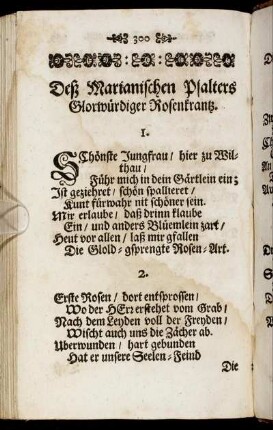 300
Deß Marianischen Psalters
Glorwürdiger Rosenkrantz.
1.
SChönste Jungfrau / hier zu Wil-
thau /
Führ mich in dein Gärtlein ein;
Ist geziehret / schön spallieret /
Kunt fürwahr nit schöner sein.
Mir erlaube / daß drinn klaube
Ein / und anders Blüemlein zart /
Heut vor allen / laß mir gfallen
Die Glold-gsprengte Rosen-Art.
2.
Erste Rosen / dort entsprossen /
Wo der HErr erstehet vom Grab /
Nach dem Leyden voll der Freyden /
Wischt auch uns die Zächer ab.
Uberwunden / hart gebunden
Hat er unsere Seelen-Feind
Die